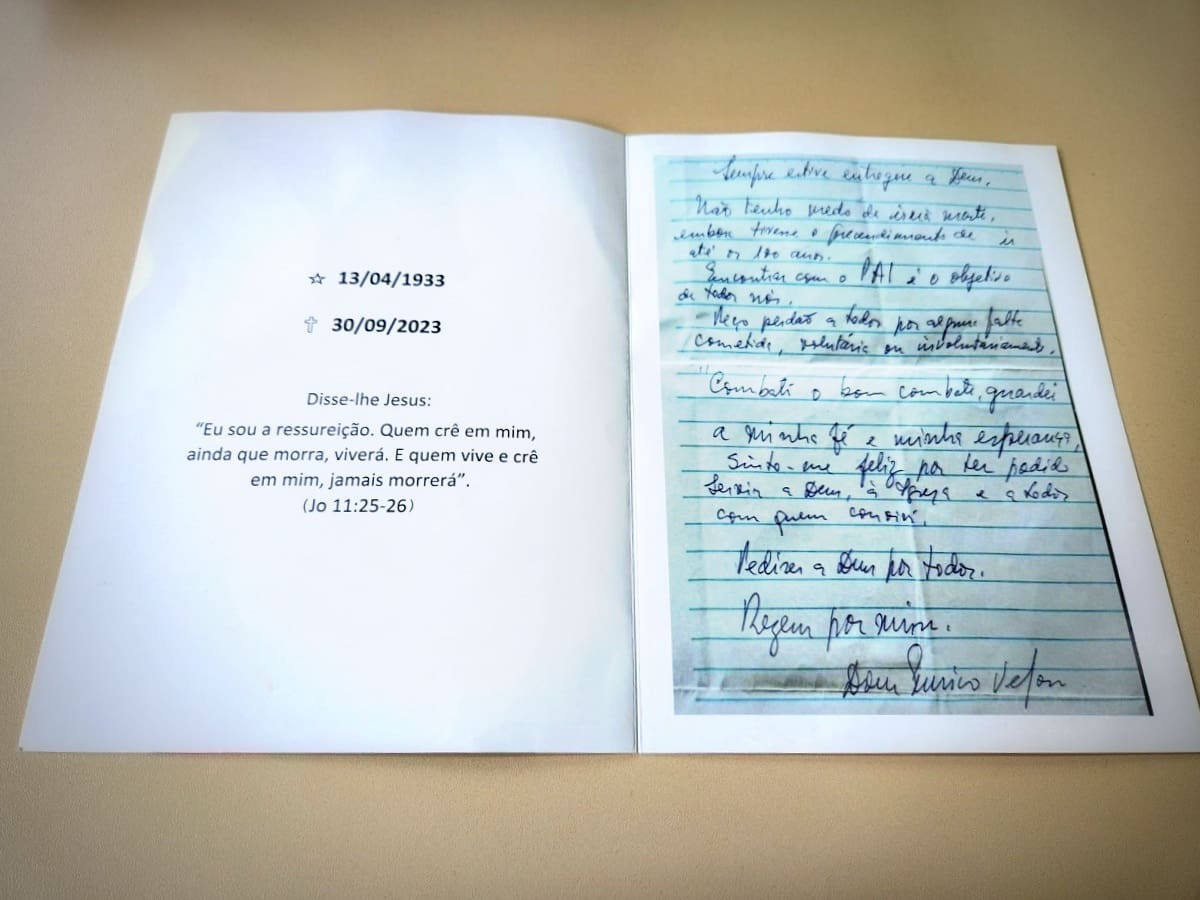 ☆ 13/04/1933
✞ 30/09/2023
Disse-lhe Jesus:
“Eu sou a ressureição. Quem crê em mim,
ainda que morra, viverá. E quem vive e crê
em mim, jamais morrerá”.
(Jo 11:25-26)
Sempre estive entregue a Deus.
Não tenho medo de morte,
embora tivesse o de ir
até os 100 anos.
Encontrar com o PAI é o objetivo
de todos nós.
Peço perdão a todos por alguma falta
cometida, voluntária ou involuntariamente.
"Combati o bom combate, guardei
a minha fé e minha esperança,
Sinto-me feliz por ter podido
Servir a Deus, à Igreja e a todos
com quem conviví.
Pedirei a Deus por todos.
Rezem por mim.
Dom Eurico Veloso